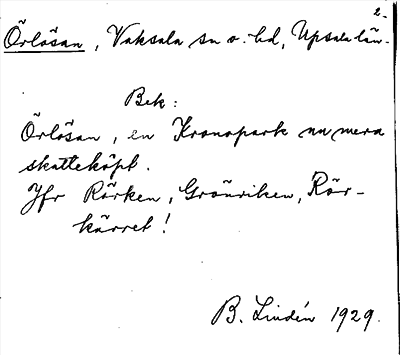 2.
Örlösan, Vaksala sn o. hd, Upsala län.
Bek:
Örlösan, en Kronopark nu mera
skatteköpt.
Jfr Rörken, Grönviken, Rör-
kärret!
B. Lindén 1929.